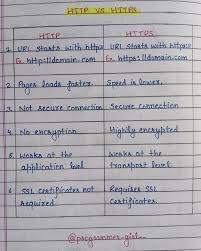 HTTP VS HTTPS
HTTP HTTPS
1. URL starts with http:// URL starts with https://
Ex. http://domain.com Ex. https://domain.com
2. Pages loads faster. Speed is lower.
3. Not secure connection Secure connection
4. No encryption Highly encrypted
5. Works at the Works at the
application level transport level.
6. SSL certificates not Requires SSL
required. Certificates.
@programmer_girl_